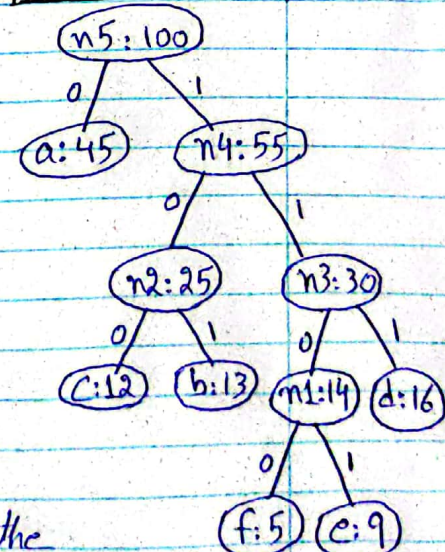 n5:100
0 1
a:45 n4:55
0 1
n2:25 n3:30
0 1 0 1
c:12 b:13 n1:14 d:16
0 1
the f:5 e:9